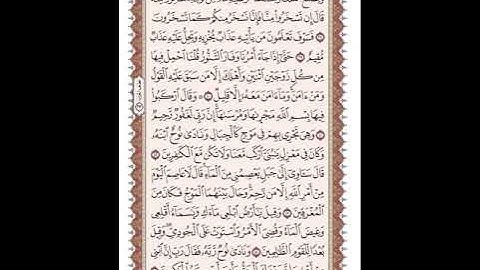 قَالَ إِن تَسْخَرُوا۟ مِنَّا فَإِنَّا نَسْخَرُ مِنكُمْ كَمَا تَسْخَرُونَ
۝ فَسَوْفَ تَعْلَمُونَ مَن يَأْتِيهِ عَذَابٌ يُخْزِيهِ وَيَحِلُّ عَلَيْهِ عَذَابٌ
مُّقِيمٌ ۝ حَتَّىٰٓ إِذَا جَآءَ أَمْرُنَا وَفَارَ ٱلتَّنُّورُ قُلْنَا ٱحْمِلْ فِيهَا
مِن كُلٍّ زَوْجَيْنِ ٱثْنَيْنِ وَأَهْلَكَ إِلَّا مَن سَبَقَ عَلَيْهِ ٱلْقَوْلُ
وَمَنْ ءَامَنَ وَمَآ ءَامَنَ مَعَهُۥٓ إِلَّا قَلِيلٌ ۝ ۞ وَقَالَ ٱرْكَبُوا۟
فِيهَا بِسْمِ ٱللَّهِ مَجْر۪ىٰهَا وَمُرْسَىٰهَآ إِنَّ رَبِّى لَغَفُورٌ رَّحِيمٌ
۝ وَهِىَ تَجْرِى بِهِمْ فِى مَوْجٍ كَٱلْجِبَالِ وَنَادَىٰ نُوحٌ ٱبْنَهُۥ
وَكَانَ فِى مَعْزِلٍ يَٰبُنَىَّ ٱرْكَب مَّعَنَا وَلَا تَكُن مَّعَ ٱلْكَٰفِرِينَ ۝
قَالَ سَـَٔاوِىٓ إِلَىٰ جَبَلٍ يَعْصِمُنِى مِنَ ٱلْمَآءِ قَالَ لَا عَاصِمَ ٱلْيَوْمَ
مِنْ أَمْرِ ٱللَّهِ إِلَّا مَن رَّحِمَ وَحَالَ بَيْنَهُمَا ٱلْمَوْجُ فَكَانَ مِنَ
ٱلْمُغْرَقِينَ ۝ وَقِيلَ يَٰٓأَرْضُ ٱبْلَعِى مَآءَكِ وَيَٰسَمَآءُ أَقْلِعِى
وَغِيضَ ٱلْمَآءُ وَقُضِىَ ٱلْأَمْرُ وَٱسْتَوَتْ عَلَى ٱلْجُودِىِّ وَقِيلَ
بُعْدًا لِّلْقَوْمِ ٱلظَّٰلِمِينَ ۝ وَنَادَىٰ نُوحٌ رَّبَّهُۥ فَقَالَ رَبِّ إِنَّ ٱبْنِى